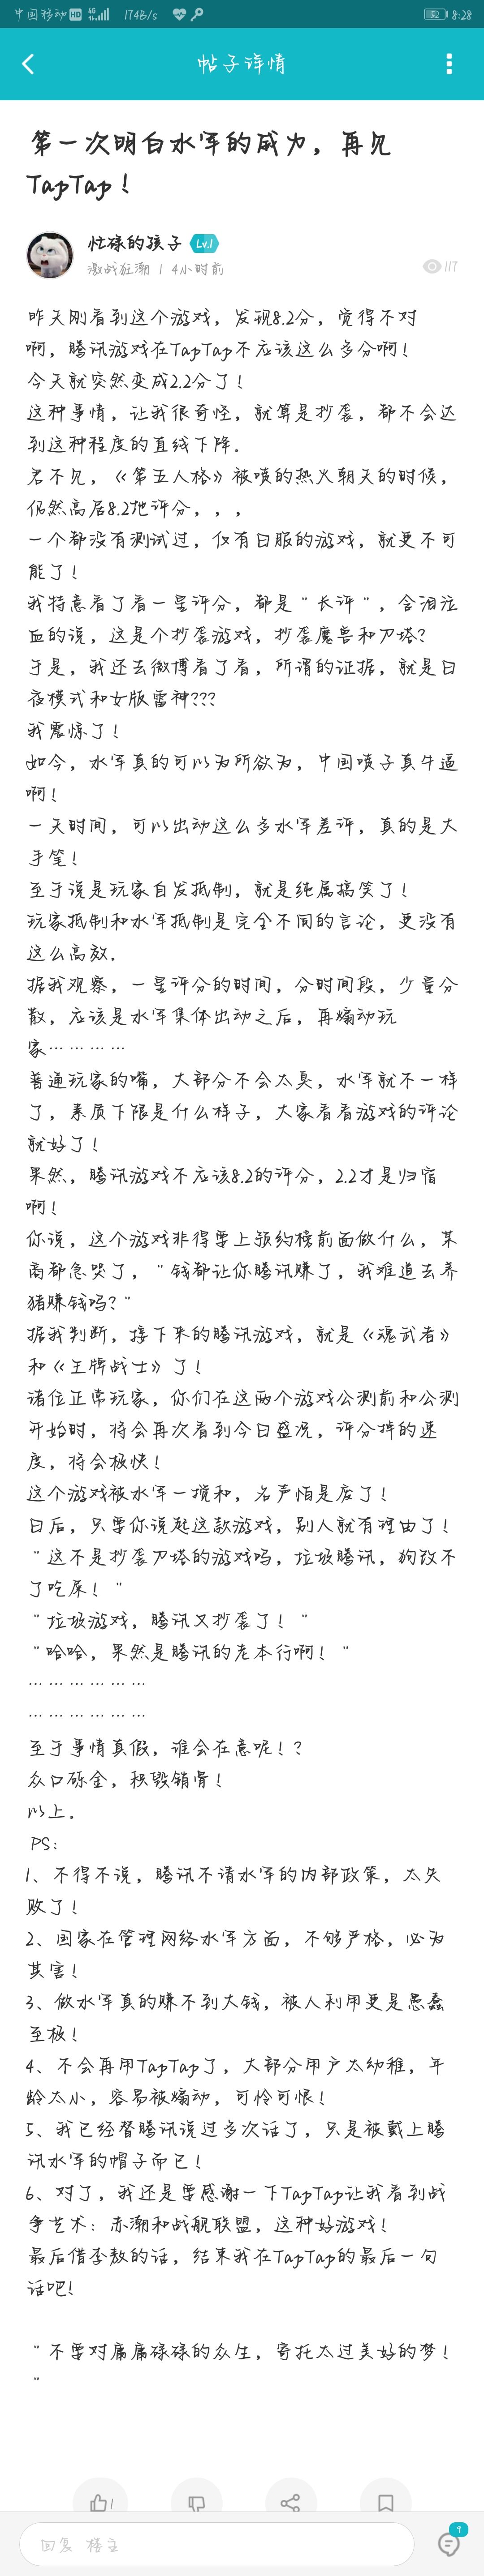 中国移动 HD 4G 174B/s 52 8:28
帖子详情
第一次明白水军的威力，再见
TapTap！
忙碌的孩子 Lv.1
激战狂潮 | 4小时前
117
昨天刚看到这个游戏，发现8.2分，觉得不对
啊，腾讯游戏在TapTap不应该这么多分啊！
今天就突然变成2.2分了！
这种事情，让我很奇怪，就算是抄袭，都不会达
到这种程度的直线下降.
君不见，《第五人格》被喷的热火朝天的时候，
仍然高居8.2地评分，，，
一个都没有测试过，仅有日服的游戏，就更不可
能了！
我特意看了看一星评分，都是＂长评＂，含泪泣
血的说，这是个抄袭游戏，抄袭魔兽和刀塔？
于是，我还去微博看了看，所谓的证据，就是日
夜模式和女版雷神???
我震惊了！
如今，水军真的可以为所欲为，中国喷子真牛逼
啊！
一天时间，可以出动这么多水军差评，真的是大
手笔！
至于说是玩家自发抵制，就是纯属搞笑了！
玩家抵制和水军抵制是完全不同的言论，更没有
这么高效.
据我观察，一星评分的时间，分时间段，少量分
散，应该是水军集体出动之后，再煽动玩
家…………
普通玩家的嘴，大部分不会太臭，水军就不一样
了，素质下限是什么样子，大家看看游戏的评论
就好了！
果然，腾讯游戏不应该8.2的评分，2.2才是归宿
啊！
你说，这个游戏非得要上预约榜前面做什么，某
商都急哭了，＂钱都让你腾讯赚了，我难道去养
猪赚钱吗？＂
据我判断，接下来的腾讯游戏，就是《魂武者》
和《王牌战士》了！
诸位正常玩家，你们在这两个游戏公测前和公测
开始时，将会再次看到今日盛况，评分掉的速
度，将会极快！
这个游戏被水军一搅和，名声怕是废了！
日后，只要你说起这款游戏，别人就有理由了！
＂这不是抄袭刀塔的游戏吗，垃圾腾讯，狗改不
了吃屎！＂
＂垃圾游戏，腾讯又抄袭了！＂
＂哈哈，果然是腾讯的老本行啊！＂
………………
………………
至于事情真假，谁会在意呢！？
众口砾金，积毁销骨！
以上.
PS：
1、不得不说，腾讯不请水军的内部政策，太失
败了！
2、国家在管理网络水军方面，不够严格，必为
其害！
3、做水军真的赚不到大钱，被人利用更是愚蠢
至极！
4、不会再用TapTap了，大部分用户太幼稚，年
龄太小，容易被煽动，可怜可恨！
5、我已经替腾讯说过多次话了，只是被戴上腾
讯水军的帽子而已！
6、对了，我还是要感谢一下TapTap让我看到战
争艺术：赤潮和战舰联盟，这种好游戏！
最后借李敖的话，结束我在TapTap的最后一句
话吧！
＂不要对庸庸碌碌的众生，寄托太过美好的梦！
＂
1
回复 楼主
9